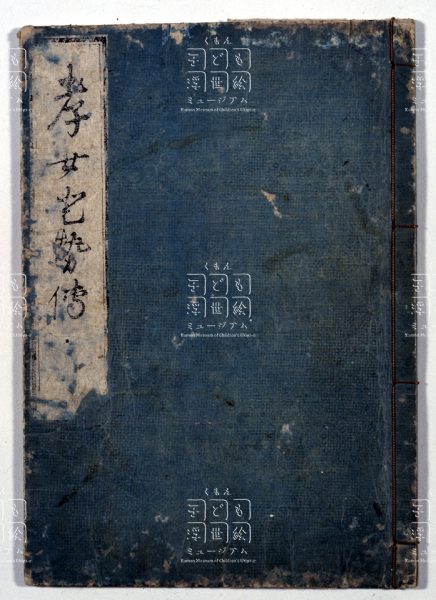 孝女登勢傳
くもん
子ども
浮世絵
ミュージアム
Kumon Museum of Children's Ukiyo-e
くもん
子ども
浮世絵
ミュージアム
Kumon Museum of Children's Ukiyo-e
くもん
子ども
浮世絵
ミュージアム
Kumon Museum of Children's Ukiyo-e